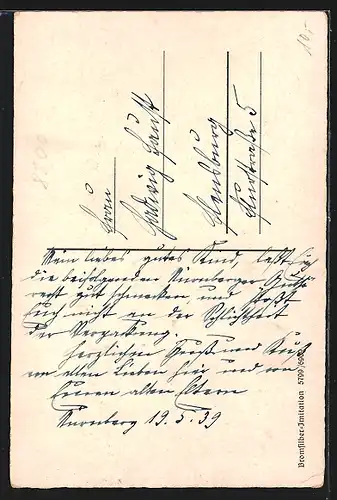 Frau
Hedwig Hanst
Flensburg
straße 5
Mein liebes gutes Kind, laßt Euch
die beifolgenden Nürnberger
recht gut schmecken und stoßt
Euch nicht an der Schlichtheit
der Verpackung.
Herzlichen Gruß und Kuß
von allen Lieben hier und von
Euren alten Eltern
Nürnberg 19.5.39
Bromsilber-Imitation
10,-